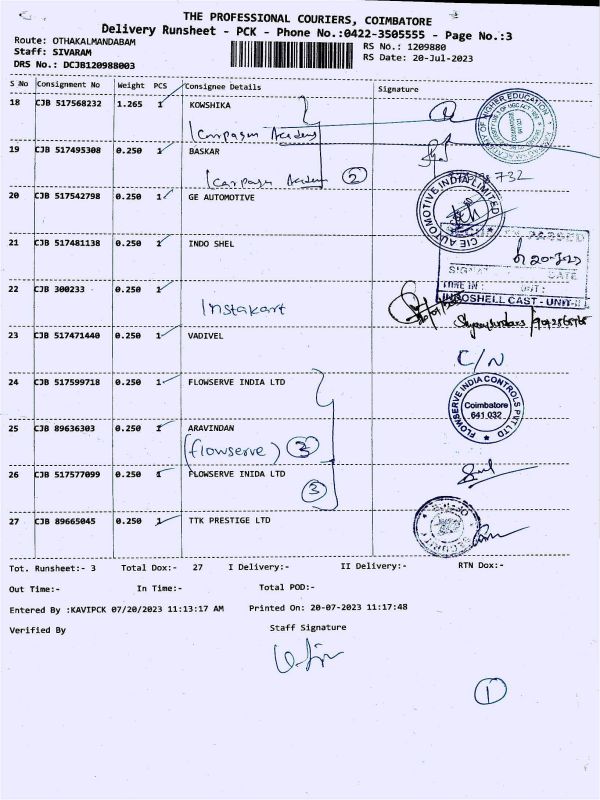 THE PROFESSIONAL COURIERS, COIMBATORE
Delivery Runsheet - PCK - Phone No.:0422-3505555 - Page No.:3
Route: OTHAKALMANDABAM
RS No.: 1209880
Staff: SIVARAM
RS Date: 20-Jul-2023
DRS No.: DCJB120988003
S No Consignment No Weight PCS Consignee Details Signature
18 CJB 517568232 1.265 1 KOWSHIKA
Karpagam Academy
19 CJB 517495308 0.250 1 BASKAR
Karpagam Academy 2
20 CJB 517542798 0.250 1 GE AUTOMOTIVE
CIE AUTOMOTIVE INDIA LIMITED
21 CJB 517481138 0.250 1 INDO SHEL
20-7-23
DATE
TIME IN :
INDOSHELL CAST - UNIT-II
22 CJB 300233 0.250 1
Instakart
23 CJB 517471440 0.250 1 VADIVEL
C/N
24 CJB 517599718 0.250 1 FLOWSERVE INDIA LTD
FLOWSERVE INDIA CONTROLS PVT LTD
Coimbatore
641 032
25 CJB 89636303 0.250 1 ARAVINDAN
(flowserve) 3
26 CJB 517577099 0.250 1 FLOWSERVE INIDA LTD
3
27 CJB 89665045 0.250 1 TTK PRESTIGE LTD
SECURITY
Tot. Runsheet:- 3 Total Dox:- 27 I Delivery:- II Delivery:- RTN Dox:-
Out Time:- In Time:- Total POD:-
Entered By :KAVIPCK 07/20/2023 11:13:17 AM Printed On: 20-07-2023 11:17:48
Verified By Staff Signature
1